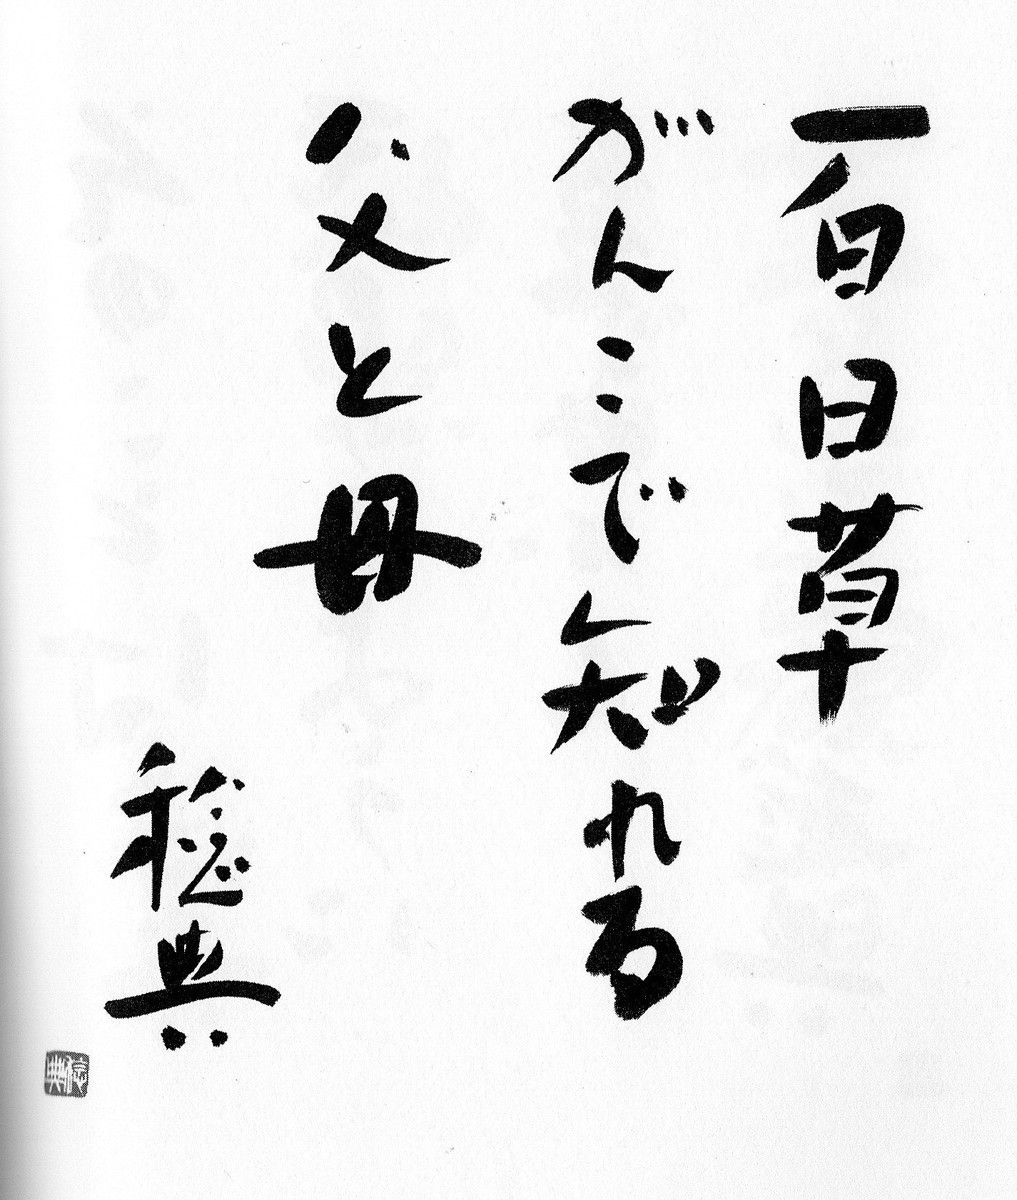 百日草
がんこで知れる
父と母
稔典
信典